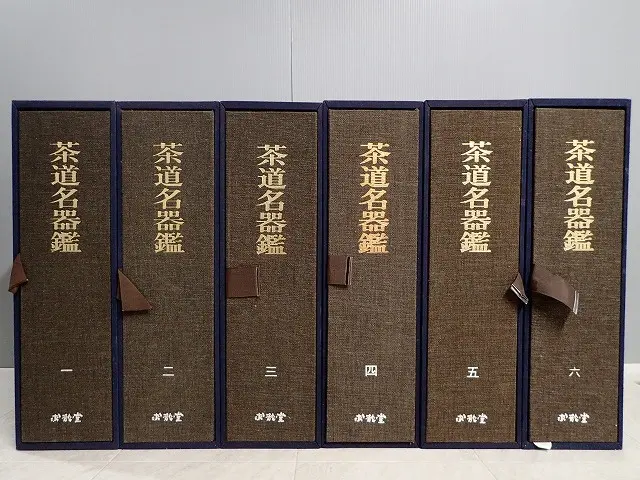 茶道名器鑑
一
茶道名器鑑
二
茶道名器鑑
三
茶道名器鑑
四
茶道名器鑑
五
茶道名器鑑
六